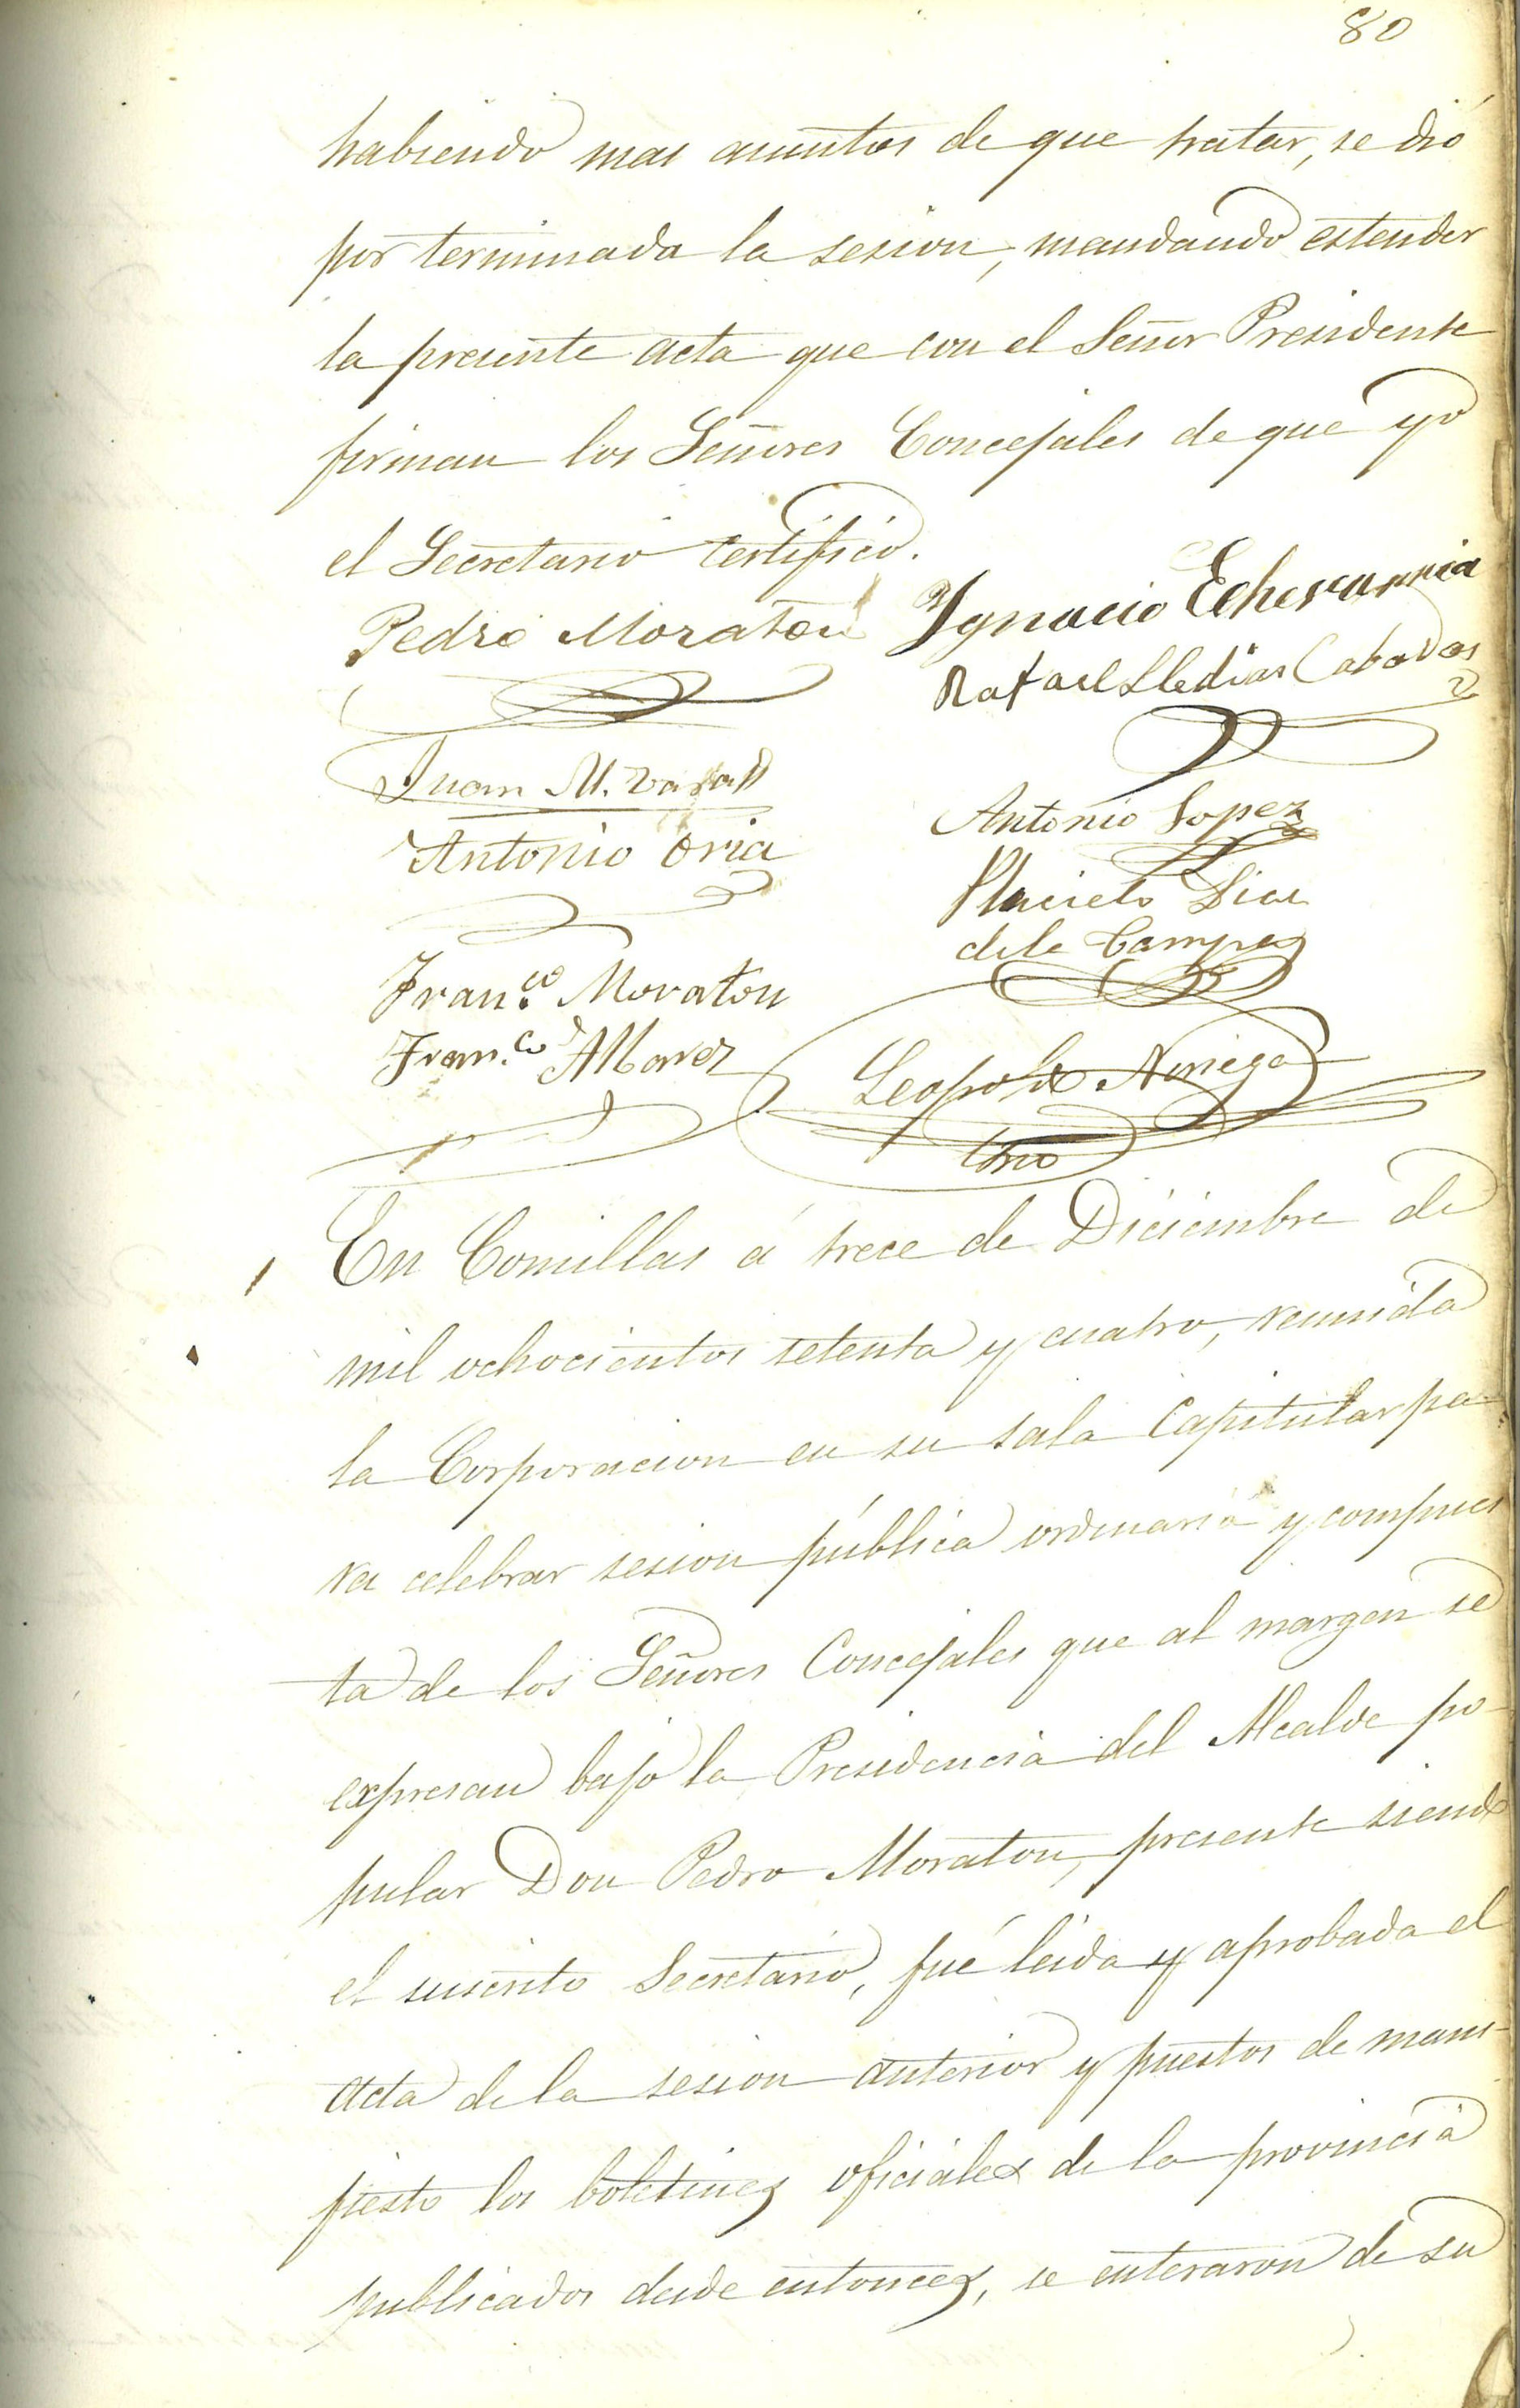 80
habiendo mas asuntos de que tratar, se dió
por terminada la sesion, mandando estender
la presente acta que con el Señor Presidente
firman los Señores Concejales de que yo
el Secretario certifico.
Pedro Moraton
Ygnacio Echevarria
Rafael
Juan M.
Antonio Lopez
Antonio Oria
Placido Diaz
de la Campa
Fran.co Moraton
Fran.co
Leopoldo Noriega
Srio
En Comillas á trece de Diciembre de
mil ochocientos setenta y cuatro, reunida
la Corporacion en su sala Capitular pa-
ra celebrar sesion pública ordinaria y compues
ta de los Señores Concejales que al margen se
expresan bajo la Presidencia del Alcalde po-
pular Don Pedro Moraton, presente siendo
el suscrito Secretario, fué leida y aprobada el
acta de la sesion anterior y puestos de mani-
fiesto los boletines oficiales de la provincia
publicados desde entonces, se enteraron de su